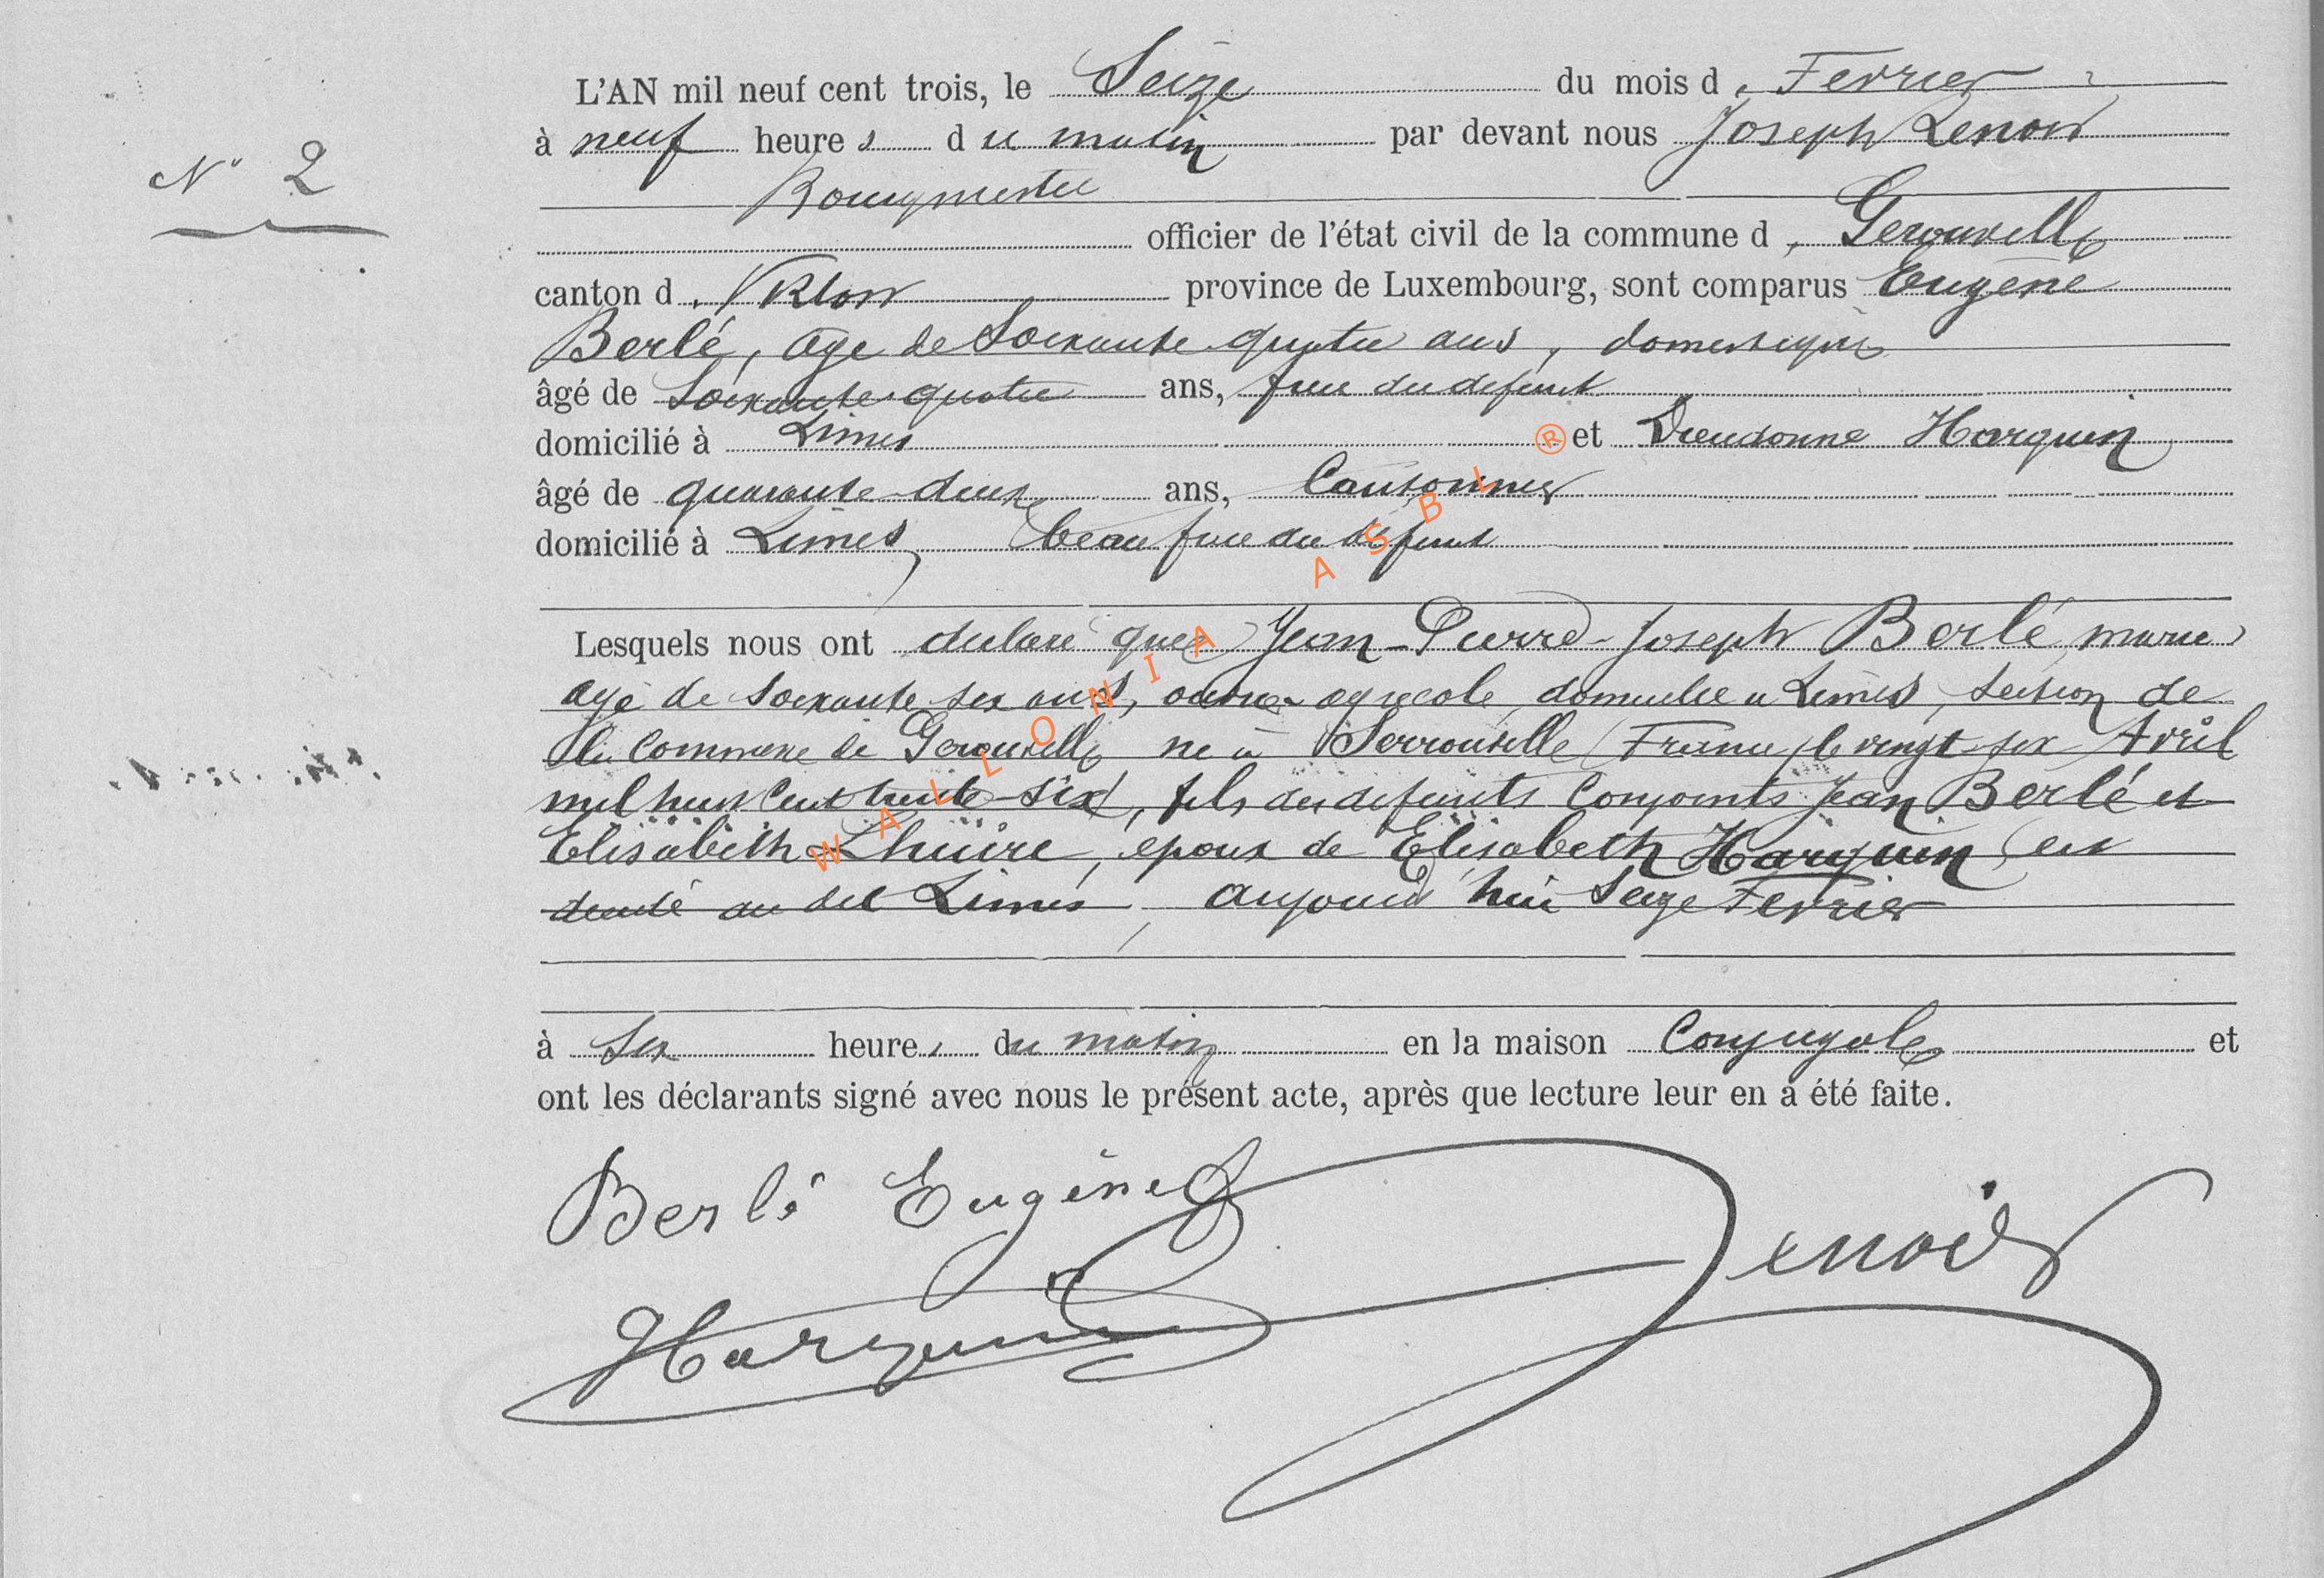 L'AN mil neuf cent trois, le Seize du mois de Fevrier
N° 2
à neuf heures du matin par devant nous Joseph Lenoir
Bourgmestre
officier de l'état civil de la commune de Gerouville
canton de Virton province de Luxembourg, sont comparus Eugène
Berlé, age de Soixante quatre ans, domestique
âgé de Soixante quatre ans, frere du defunt
domicilié à Limes et Dieudonne Harquin
âgé de quarante-deux ans, Cantonnier
domicilié à Limes, beau frere du defunt
Lesquels nous ont declare que Jean-Pierre-Joseph Berlé, marie
agé de soixante six ans, ouvrier agricole, domicilie a Limes, section de
la Commune de Gerouville ne à (France) le vingt-six Avril
mil huit Cent trente-six, fils des defunts Conjoints Jean Berlé et
Elisabeth Lhuire, epoux de Elisabeth Harquin, est
decedé au dit Limes, aujourd'hui Seize Fevrier
à Six heures du matin en la maison Conjugale et
ont les déclarants signé avec nous le présent acte, après que lecture leur en a été faite.
Berlé Eugène
Lenoir
Harquin
WALLONIA ASBL ®